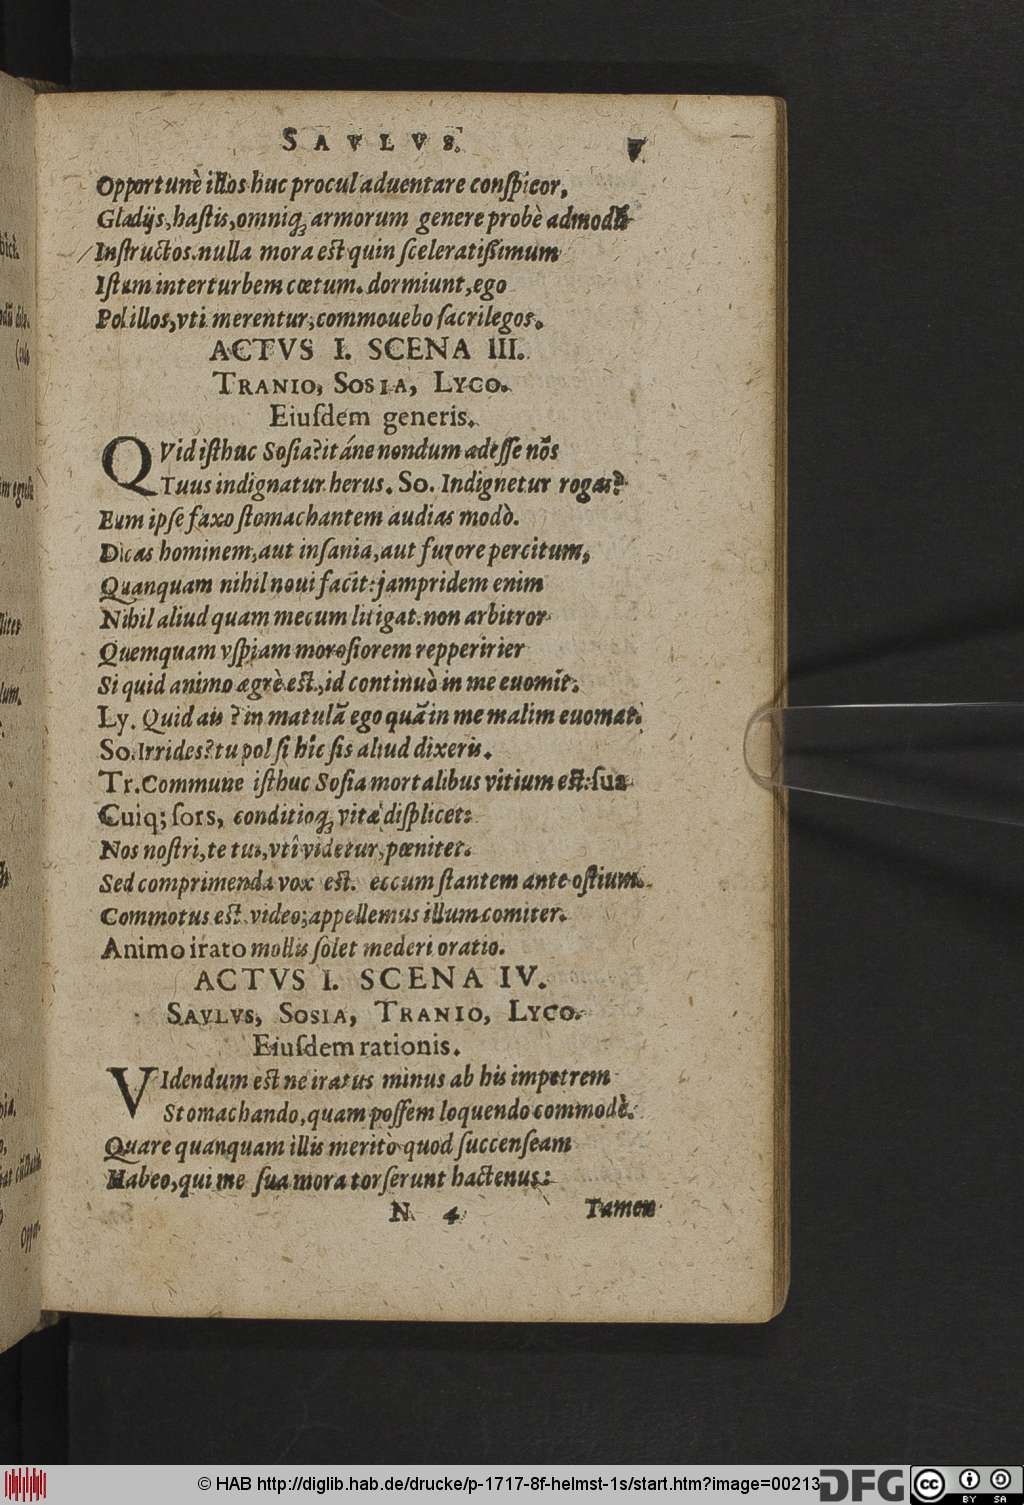 SAVLVS.
Opportunè illos huc procul aduentare conspicor,
Gladijs, hastis, omniq; armorum genere probè admodū
Instructos. nulla mora est quin sceleratißimum
Istum interturbem cœtum. dormiunt, ego
Pol illos, vti merentur, commouebo sacrilegos.
ACTVS I. SCENA III.
TRANIO, SOSIA, LYCO.
Eiusdem generis.
QVid isthuc Sosia? itáne nondum adesse nōs
Tuus indignatur herus. So. Indignetur rogas?
Eum ipse faxo stomachantem audias modò.
Dicas hominem, aut insania, aut furore percitum,
Quanquam nihil noui facit: jampridem enim
Nihil aliud quam mecum litigat. non arbitror
Quemquam vspiam morosiorem repperirier
Si quid animo ægrè est, id continuò in me euomit.
Ly. Quid ais? in matulā ego quā in me malim euomat.
So. Irrides? tu pol si hîc sis aliud dixeris.
Tr. Commune isthuc Sosia mortalibus vitium est: sua
Cuiq; sors, conditioq; vitæ displicet:
Nos nostri, te tui, vti videtur, pœnitet.
Sed comprimenda vox est. eccum stantem ante ostium.
Commotus est video; appellemus illum comiter.
Animo irato mollis solet mederi oratio.
ACTVS I. SCENA IV.
SAVLVS, SOSIA, TRANIO, LYCO.
Eiusdem rationis.
VIdendum est ne iratus minus ab his impetrem
Stomachando, quam possem loquendo commodè.
Quare quanquam illis meritò quod succenseam
Habeo, qui me sua mora torserunt hactenus:
N 4 Tamen
© HAB http://diglib.hab.de/drucke/p-1717-8f-helmst-1s/start.htm?image=00213
DFG
cc BY SA